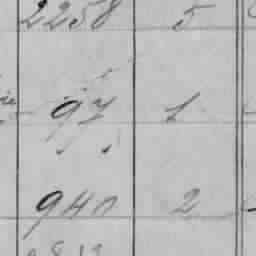 2258 5
97 1
940 2